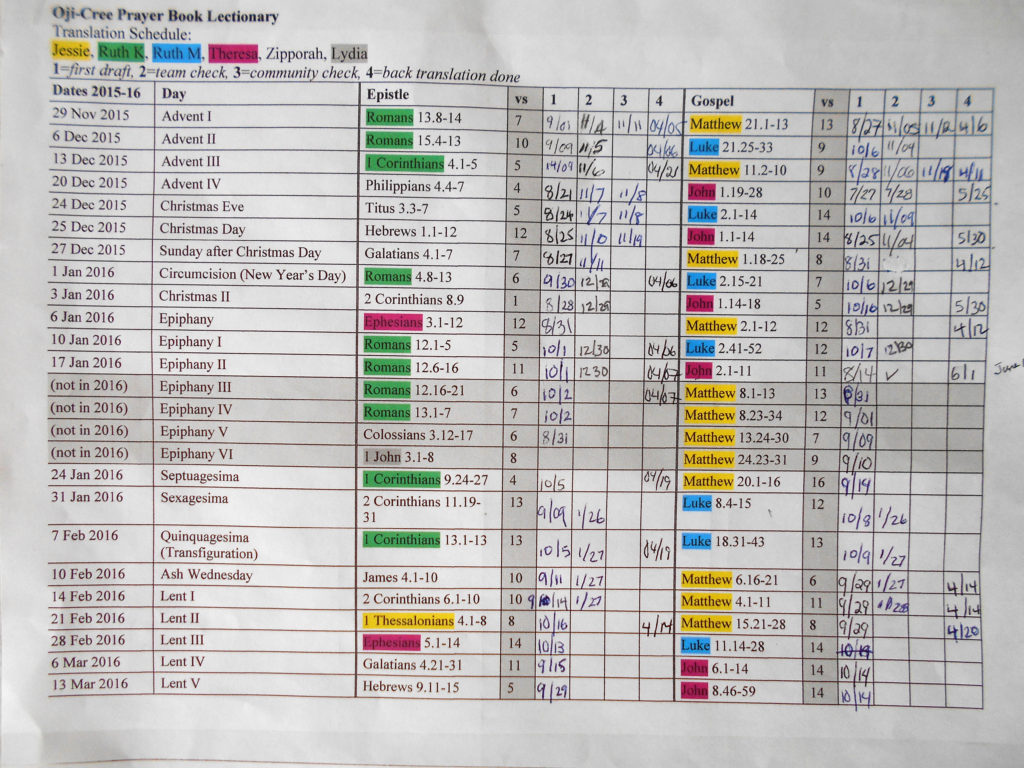 Oji-Cree Prayer Book Lectionary
Translation Schedule:
Jessie, Ruth K, Ruth M, Theresa, Zipporah, Lydia
1=first draft, 2=team check, 3=community check, 4=back translation done
Dates 2015-16 Day Epistle vs 1 2 3 4 Gospel vs 1 2 3 4
29 Nov 2015 Advent I Romans 13.8-14 7 9/01 11/4 11/11 04/05 Matthew 21.1-13 13 8/27 11/05 11/2 4/6
6 Dec 2015 Advent II Romans 15.4-13 10 9/09 11/5 04/06 Luke 21.25-33 9 10/6 11/09
13 Dec 2015 Advent III 1 Corinthians 4.1-5 5 14/09 11/6 04/21 Matthew 11.2-10 9 8/28 11/06 11/18 4/11
20 Dec 2015 Advent IV Philippians 4.4-7 4 8/21 11/7 11/8 John 1.19-28 10 7/27 7/28 5/25
24 Dec 2015 Christmas Eve Titus 3.3-7 5 8/24 11/7 11/8 Luke 2.1-14 14 10/6 11/09
25 Dec 2015 Christmas Day Hebrews 1.1-12 12 8/25 11/10 11/19 John 1.1-14 14 8/25 11/04 5/30
27 Dec 2015 Sunday after Christmas Day Galatians 4.1-7 7 8/27 11/11 Matthew 1.18-25 8 8/31 4/12
1 Jan 2016 Circumcision (New Year's Day) Romans 4.8-13 6 9/30 12/28 04/06 Luke 2.15-21 7 10/6 12/29
3 Jan 2016 Christmas II 2 Corinthians 8.9 1 8/28 12/29 John 1.14-18 5 10/16 12/29 5/30
6 Jan 2016 Epiphany Ephesians 3.1-12 12 8/31 Matthew 2.1-12 12 8/31 4/12
10 Jan 2016 Epiphany I Romans 12.1-5 5 10/1 12/30 04/06 Luke 2.41-52 12 10/7 12/30
17 Jan 2016 Epiphany II Romans 12.6-16 11 10/1 12 30 04/07 John 2.1-11 11 8/14 ✓ 6/1 June
(not in 2016) Epiphany III Romans 12.16-21 6 10/2 04/07 Matthew 8.1-13 13 8/31
(not in 2016) Epiphany IV Romans 13.1-7 7 10/2 Matthew 8.23-34 12 9/01
(not in 2016) Epiphany V Colossians 3.12-17 6 8/31 Matthew 13.24-30 7 9/09
(not in 2016) Epiphany VI 1 John 3.1-8 8 Matthew 24.23-31 9 9/10
24 Jan 2016 Septuagesima 1 Corinthians 9.24-27 4 10/5 04/19 Matthew 20.1-16 16 9/14
31 Jan 2016 Sexagesima 2 Corinthians 11.19- 13 9/09 1/26 Luke 8.4-15 12 10/8 1/26
31
7 Feb 2016 Quinquagesima 1 Corinthians 13.1-13 13 10/5 1/27 04/19 Luke 18.31-43 13 10/9 1/27
(Transfiguration)
10 Feb 2016 Ash Wednesday James 4.1-10 10 9/11 1/27 Matthew 6.16-21 6 9/29 1/27 4/14
14 Feb 2016 Lent I 2 Corinthians 6.1-10 10 9/14 1/27 Matthew 4.1-11 11 9/29 1/28 4/14
21 Feb 2016 Lent II 1 Thessalonians 4.1-8 8 10/16 4/14 Matthew 15.21-28 8 9/29 4/20
28 Feb 2016 Lent III Ephesians 5.1-14 14 10/13 Luke 11.14-28 14 10/14
6 Mar 2016 Lent IV Galatians 4.21-31 11 9/15 John 6.1-14 14 10/14
13 Mar 2016 Lent V Hebrews 9.11-15 5 9/29 John 8.46-59 14 10/14